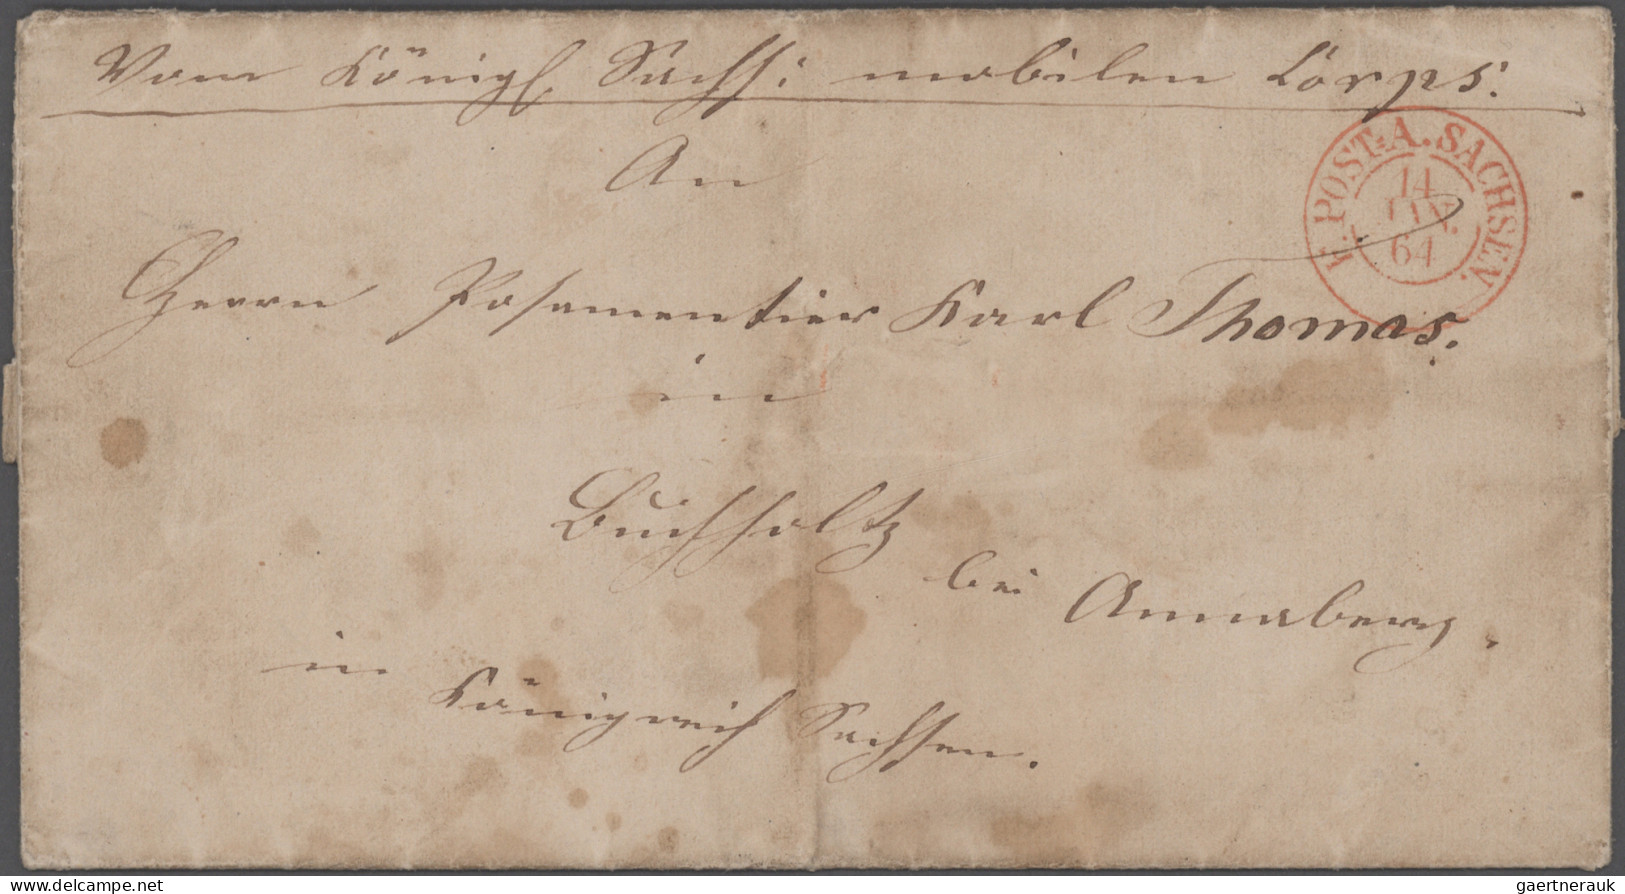 Vom Königl Sächs: mobilen Corps.
K. POST-A. SACHSEN.
14
JAN.
64
An
Herrn Posamentier Karl Thomas.
in
Buchholtz
bei Annaberg.
in Königreich Sachsen.
delcampe.net
gaertnerauk